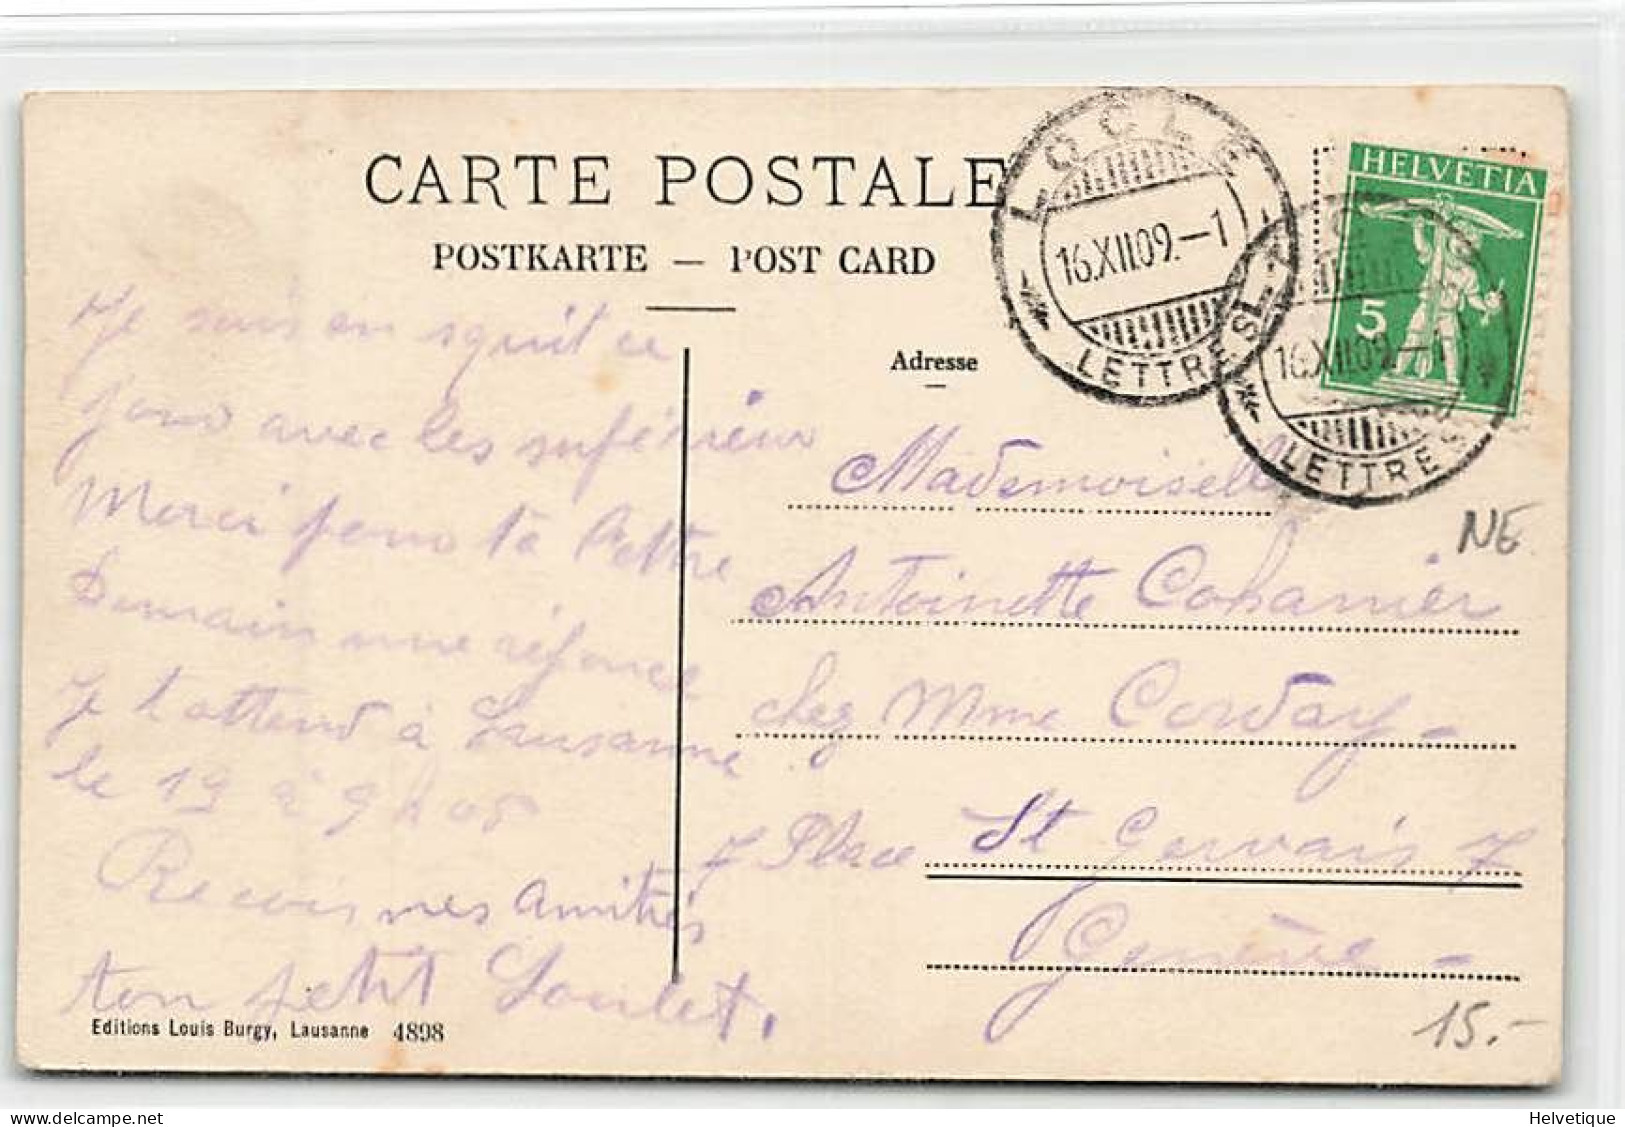 CARTE POSTALE
POSTKARTE — POST CARD
LOCLE
16.XII.09.—1
LETTRES
HELVETIA
5
16.XII.09.—1
LETTRES
Adresse
Je suis en
jour avec les
Merci pour ta lettre
Demain une réponse
Je t'attend à Lausanne
le 19 à 9 h 05
Recois mes amitiés
ton petit Loulet.
Mademoiselle
Antoinette Cohannier
chez Mme Corday -
7 Place St Gervais 7
Genève -
NE
15.-
Editions Louis Burgy, Lausanne 4898
delcampe.net
Helvetique